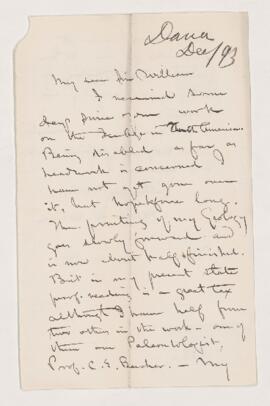 Dana
Dec/93
My dear Sir William
I received some
days since your work
on the Ice Age in America.
Being disabled as far as
headwork is concerned I
have not yet gone over
it, but hope before long.
The printing of my Geology
goes slowly forward and
is now about half finished.
But in my present state
proof-reading is a great tax
although I have help from
two others in the work — one of
them our Paleontologist,
Prof. C. E. Beecher. — My